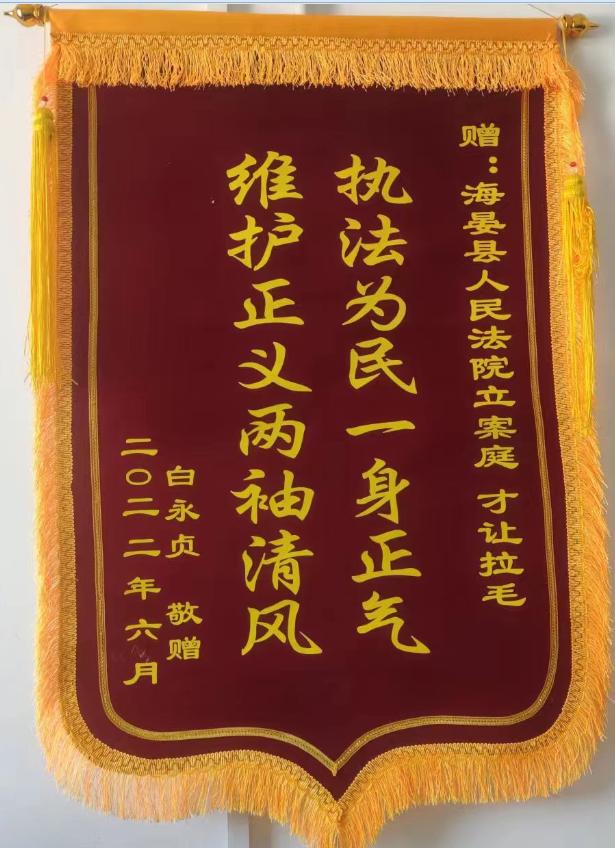 赠：海晏县人民法院立案庭 才让拉毛
执法为民一身正气
维护正义两袖清风
白永贞 敬赠
二〇二二年六月